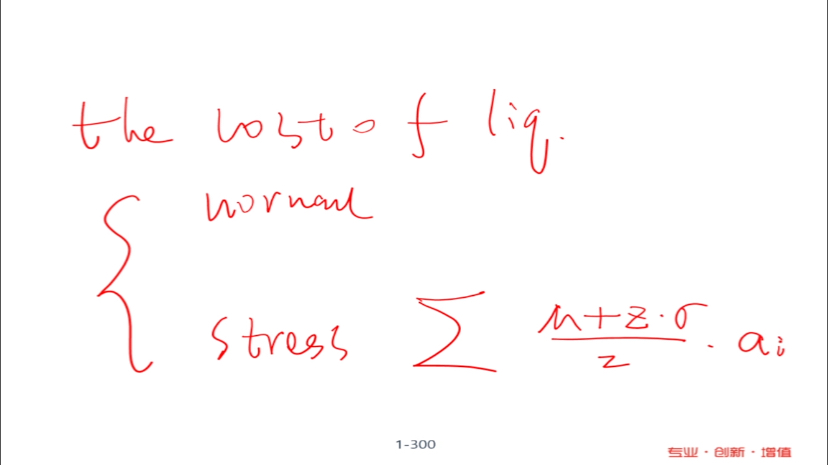 the cost of liq.
normal
stress ∑ μ+z·σ/2 · aᵢ
1-300
专业·创新·增值